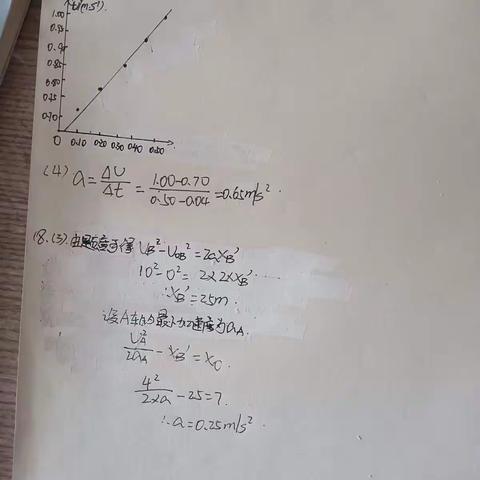 v(m·s⁻¹)
1.00
0.95
0.90
0.85
0.80
0.75
0.70
0 0.10 0.20 0.30 0.40 0.50
(4) a=ΔU/Δt=(1.00-0.70)/(0.50-0.04)=0.65m/s².
18.(3).由 得 U_B²-U_0B²=2aX_B'
10²-0²=2×2×X_B'
∴X_B'=25m.
设A车的最小加速度为a_A.
U_A²/2a_A-X_B'=X_0.
4²/2×a-25=7.
∴a=0.25m/s².